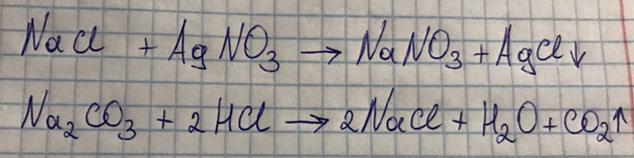 NaCl + AgNO₃ → NaNO₃ + AgCl↓
Na₂CO₃ + 2HCl → 2NaCl + H₂O + CO₂↑